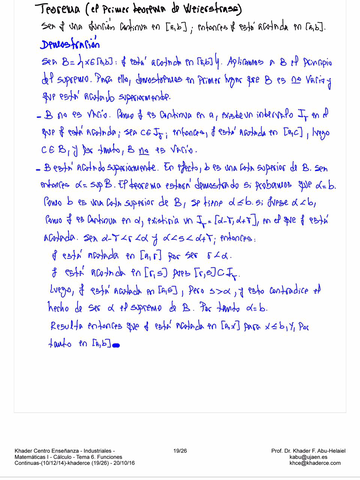 Teorema (el Primer teorema de Weierstrass)
Sea f una función continua en [a,b]; entonces f está acotada en [a,b].
Demostración
Sea B={x∈[a,b]: f está acotada en [a,b]}. Aplicamos a B el Principio
del supremo. Para ello, demostraremos en Primer lugar que B es no vacío y
que está acotado superiormente.
- B no es vacío. Como f es continua en a, existe un intervalo Ir en el
que f está acotada; sea c∈Ir, entonces, f está acotada en [a,c], luego
c∈B, y por tanto, B no es vacío.
- B está acotado superiormente. En efecto, b es una cota superior de B. Sea
entonces α=sup B. El teorema estará demostrado si probamos que α=b.
Como b es una cota superior de B, se tiene α≤b. Si fuese α<b,
como f es continua en α, existiría un Ir=[α-r,α+r], en el que f está
acotada. Sea α-r<r<α y α<s<α+r, entonces:
f está acotada en [a,r] por ser r<α.
f está acotada en [r,s] pues [r,s]⊂Ir.
Luego, f está acotada en [a,s], pero s>α, y esto contradice el
hecho de ser α el supremo de B. Por tanto α=b.
Resulta entonces que f está acotada en [a,x] para x≤b, y, por
tanto en [a,b]
Khader Centro Enseñanza - Industriales -
Matemáticas I - Cálculo - Tema 6. Funciones
Continuas-(10/12/14)-khaderce (19/26) - 20/10/16
19/26
Prof. Dr. Khader F. Abu-Helaiel
kabu@ujaen.es
khce@khaderce.com